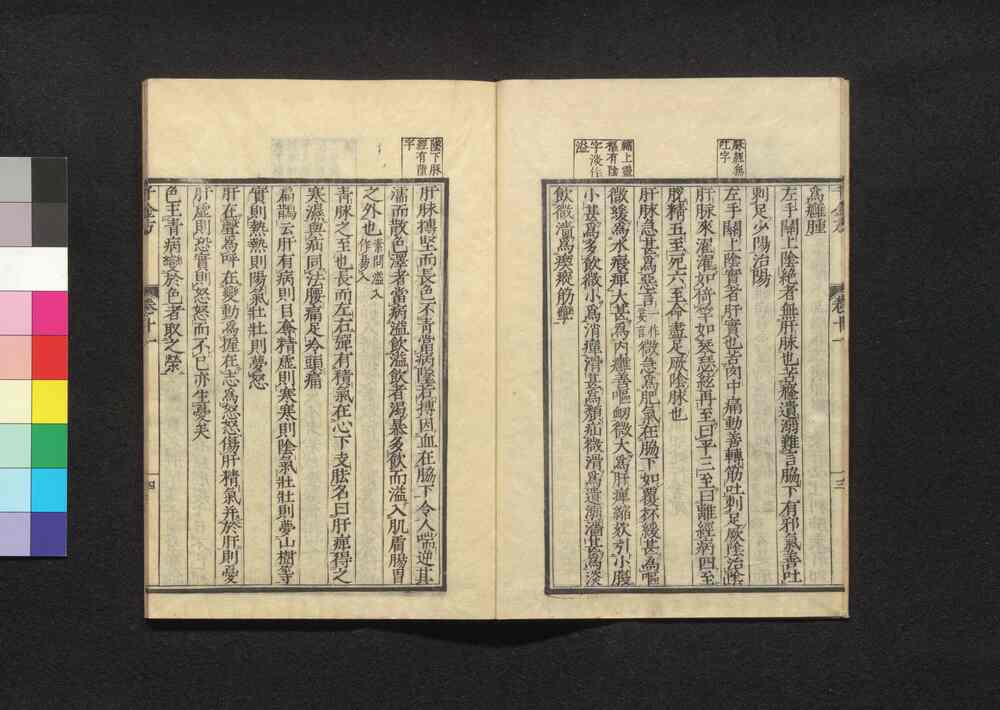 脉經無
肚字
繡上靈
樞有陰
字淡作
溢
千金方
卷十一
三
爲癰腫
左手關上陰絕者無肝脉也苦癃遺溺難言脇下有邪氣善吐
刺足少陽治陽
左手關上陰實者肝實也苦肉中痛動善轉筋吐刺足厥陰治陰
肝脉來濯濯如倚竿如琴瑟絃再至曰平三至曰離經病四至
脫精五至死六至命盡足厥陰脉也
肝脉急甚爲惡言一作妄言微急爲肥氣在脇下如覆杯緩甚爲嘔
微緩爲水瘕痺大甚爲內癰善嘔衂微大爲肝痺縮欬引小腹
小甚爲多飲微小爲消癉滑甚爲㿗疝微滑爲遺溺濇甚爲淡
飲微濇爲瘈瘲筋攣
墜下脉
經有墮
字
肝脉搏堅而長色不青當病墜若搏因血在脇下令人喘逆其
濡而散色澤者當病溢飲溢飲者渴暴多飲而溢入肌膚腸胃
之外也素問溢入作易入
青脉之至也長而左右彈有積氣在心下支胠名曰肝痺得之
寒濕與疝同法腰痛足冷頭痛
扁鵲云肝有病則目奪精虛則寒寒則陰氣壯壯則夢山樹等
實則熱熱則陽氣壯壯則夢怒
肝在聲爲呼在變動爲握在志爲怒怒傷肝精氣并於肝則憂
肝虛則恐實則怒怒而不已亦生憂矣
色主青病變於色者取之滎
千金方
卷十一
四